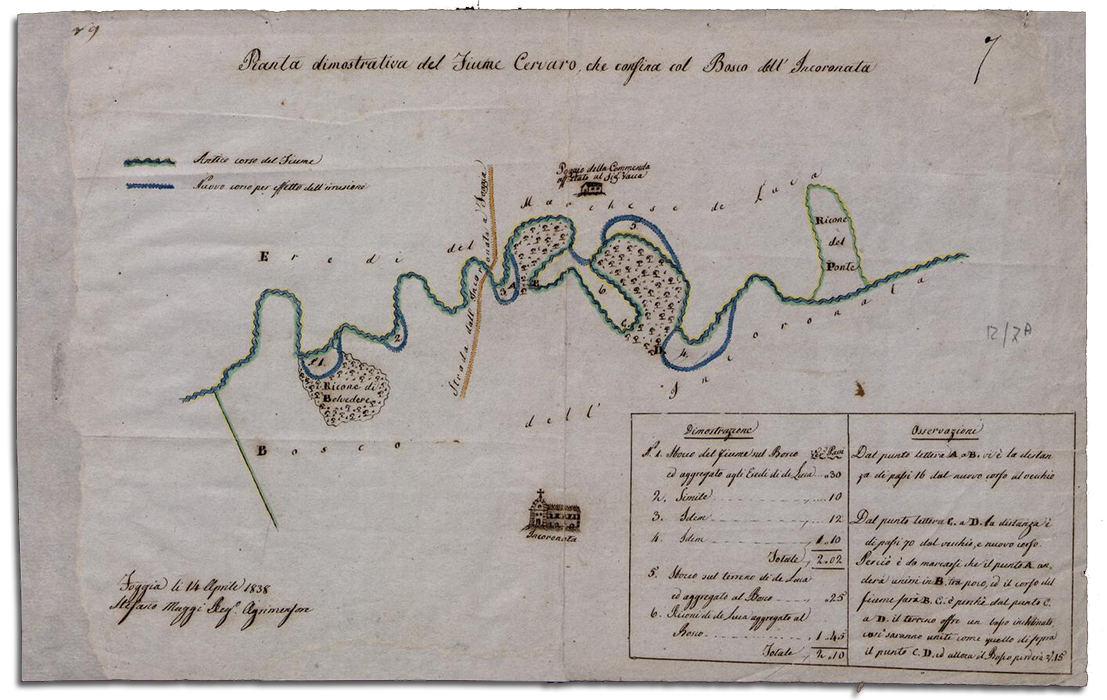 29
7
Pianta dimostrativa del Fiume Cervaro, che confina col Bosco dell' Incoronata
Antico corso del Fiume
Nuovo corso per effetto dell' invasione
Poggio della Commenda
affittato al Sig. Vacca
Eredi del Marchese de Luca
Strada dall' Incoronata a Foggia
Ricone
del
Ponte
5
3
A
B
6
C
D
4
2
1
Ricone di
Belvedere
Bosco dell' Incoronata
Incoronata
12/7A
Foggia li 14 Aprile 1838
Stefano Muggi Reg.º Agrimensore
Dimostrazione
N.º 1. Storco del fiume sul Bosco
ed aggregato agli Eredi di de Luca .. 30
2. Simile .. 10
3. Idem .. 12
4. Idem 1. 10
Totale 2. 02
5. Storco sul terreno di de Luca
ed aggregato al Bosco .. 25
6. Riconi di de Luca aggregato al
Bosco 1. 45
Totale 2. 10
Osservazioni
Dal punto lettera A a B. vi è la distan
za di passi 16 dal nuovo corso al vecchio
Dal punto lettera C. a D. la distanza è
di passi 70 dal vecchio, e nuovo corso.
Perciò è da marcarsi che il punto A an
derà unirsi in B. tra poco, ed il corso del
fiume sarà B. C. è perchè dal punto C.
a D. il terreno offre un basso inclinato,
così saranno uniti come quello di sopra
il punto C. D. ed allora il Bosco perderà 15